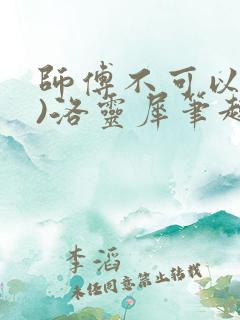 師傅不可以
)洛靈犀筆趣
李滔
未經同意禁止轉載